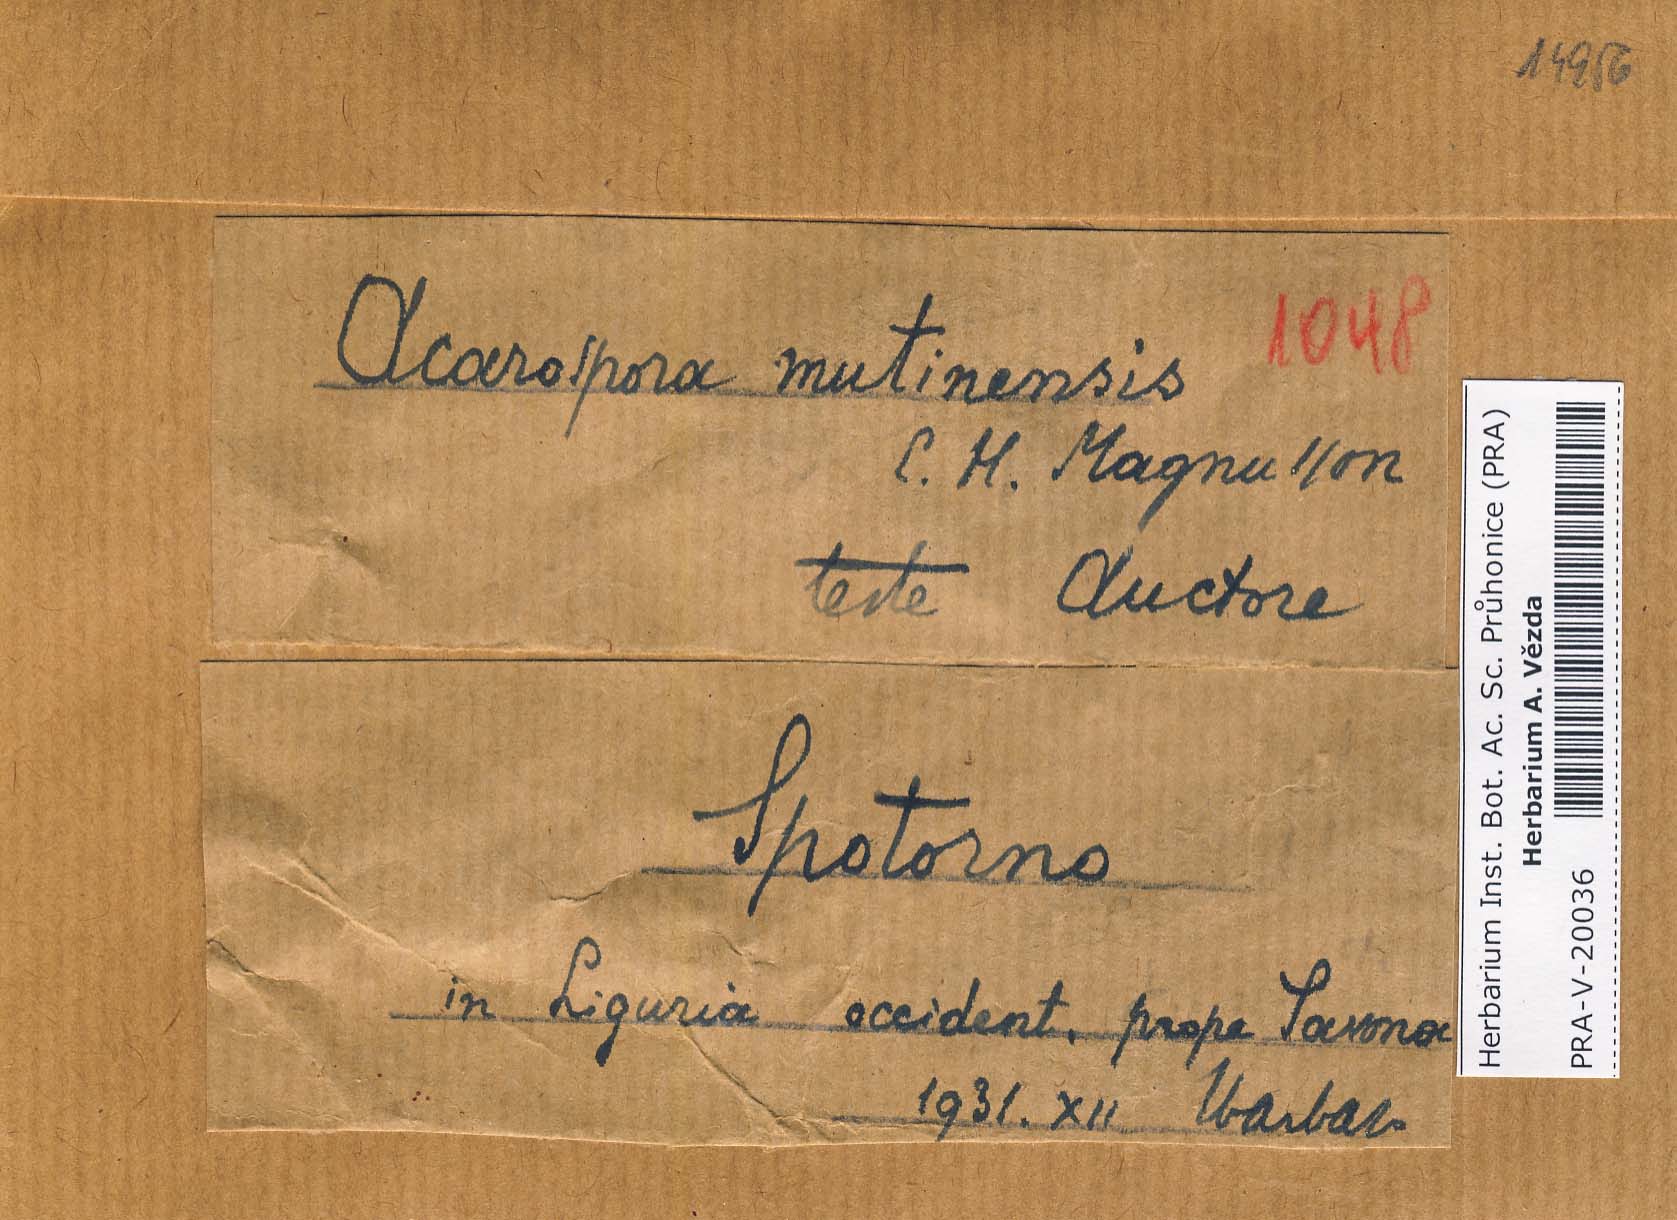 14956
1048
Acarospora mutinensis
C. H. Magnusson
teste Auctore
Spotorno
in Liguria occident. prope Savona
1931. XII
Herbarium Inst. Bot. Ac. Sc. Průhonice (PRA)
Herbarium A. Vězda
PRA-V-20036